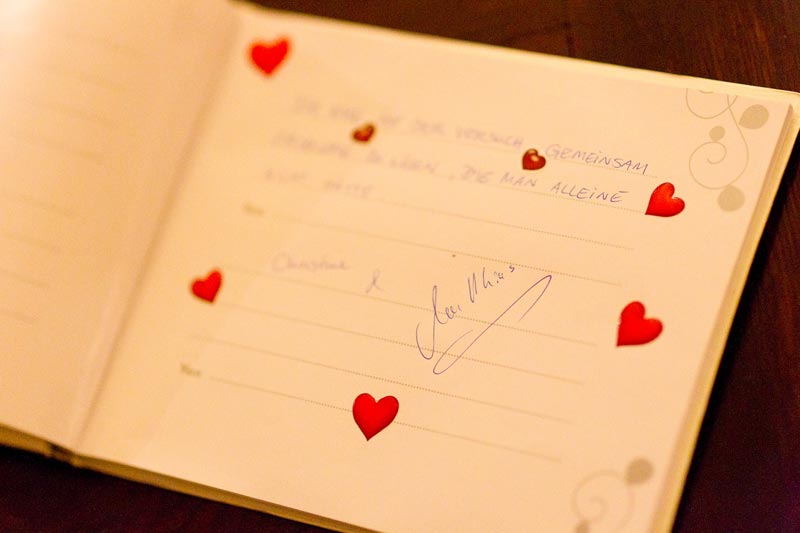 DIE EHE IST DER VERSUCH, GEMEINSAM
PROBLEME ZU LÖSEN, DIE MAN ALLEINE
NIE HÄTTE
Christine &